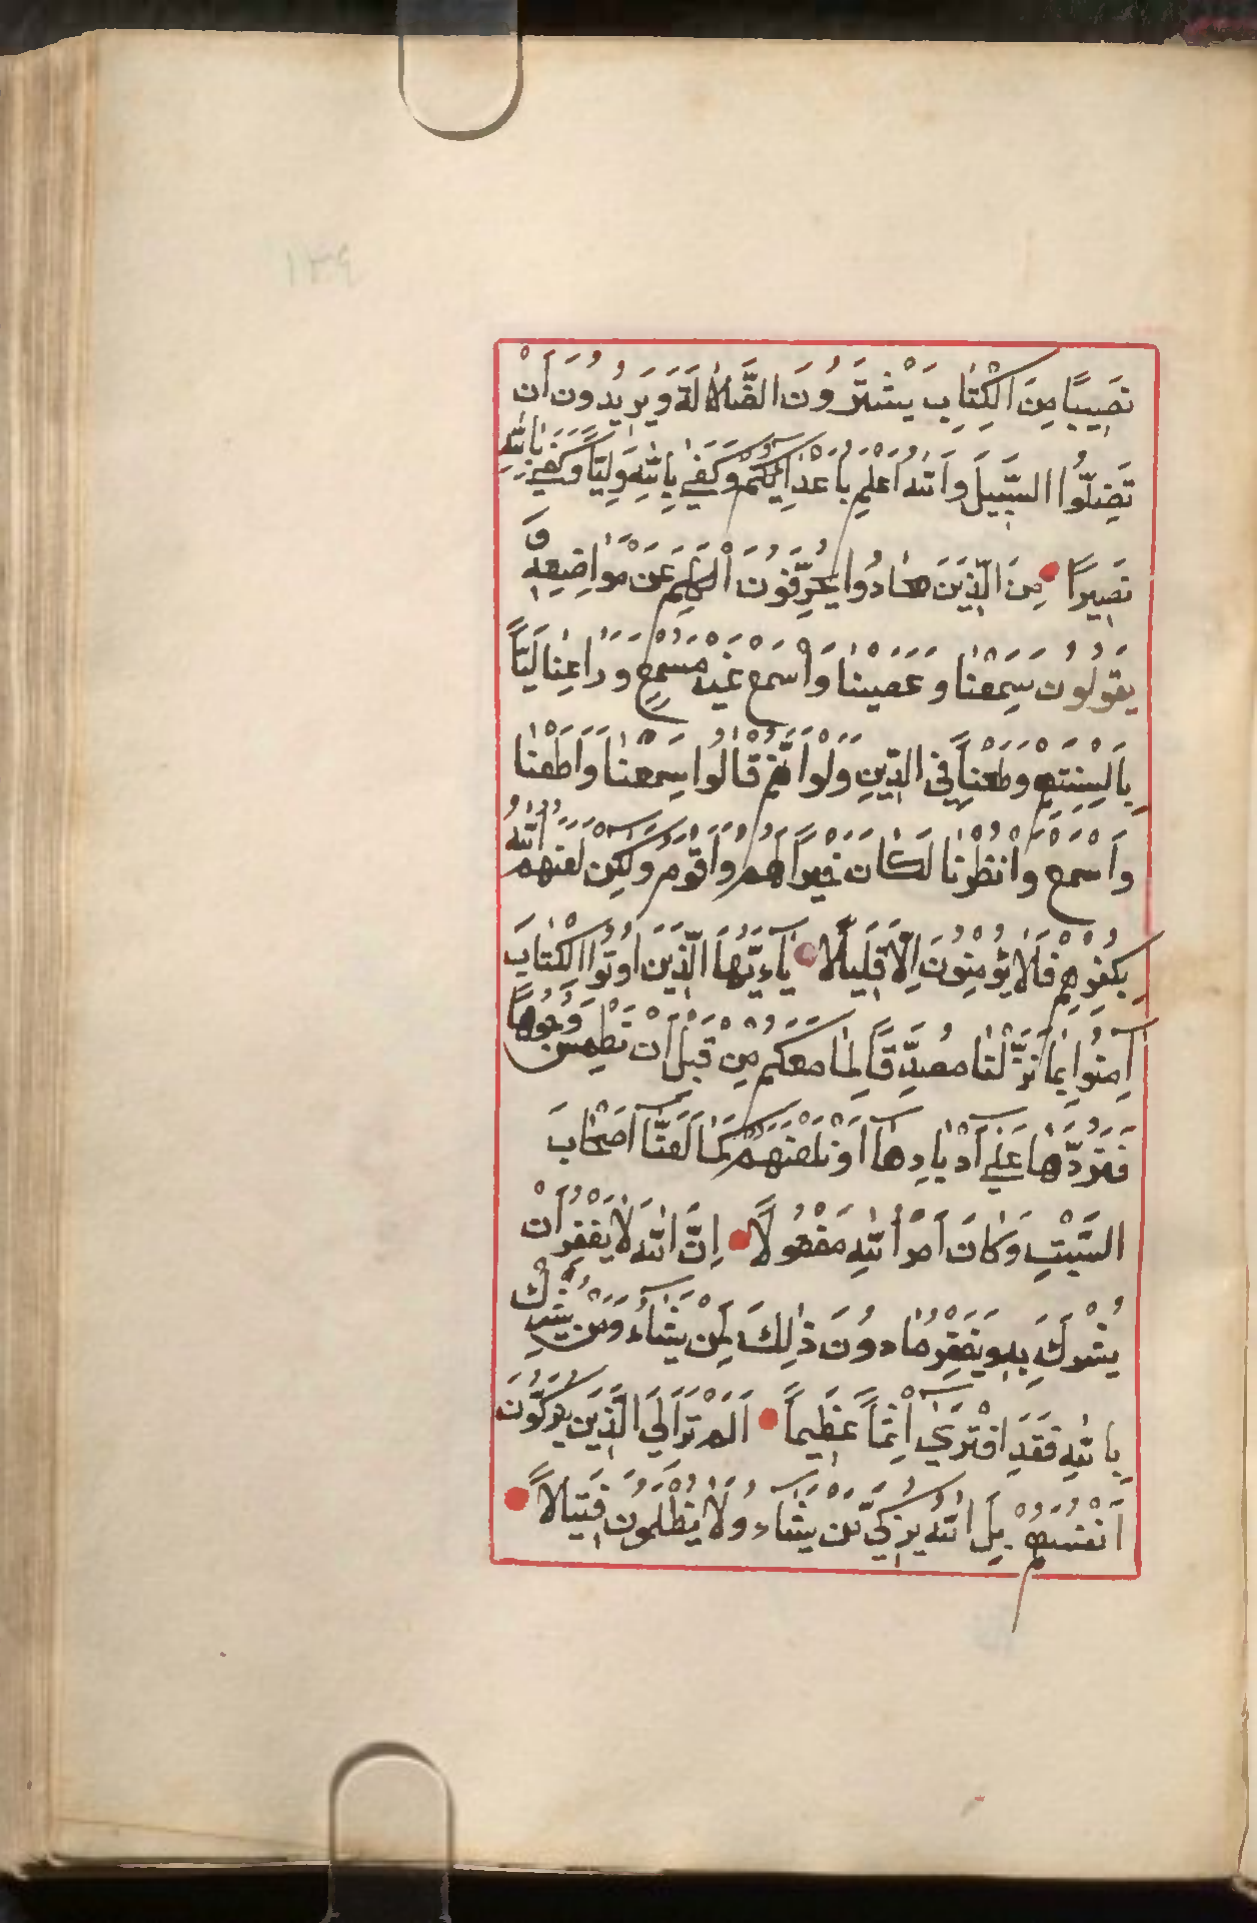 ١٣٩
نَصِيبًا مِنَ الْكِتَابِ يَشْتَرُونَ الضَّلَالَةَ وَيُرِيدُونَ أَنْ
تَضِلُّوا السَّبِيلَ وَاللهُ أَعْلَمُ بِأَعْدَائِكُمْ وَكَفَى بِاللهِ وَلِيًّا وَكَفَى بِاللهِ
نَصِيرًا مِنَ الَّذِينَ هَادُوا يُحَرِّفُونَ الْكَلِمَ عَنْ مَوَاضِعِهِ وَ
يَقُولُونَ سَمِعْنَا وَعَصَيْنَا وَاسْمَعْ غَيْرَ مُسْمَعٍ وَرَاعِنَا لَيًّا
بِأَلْسِنَتِهِمْ وَطَعْنًا فِي الدِّينِ وَلَوْ أَنَّهُمْ قَالُوا سَمِعْنَا وَأَطَعْنَا
وَاسْمَعْ وَانْظُرْنَا لَكَانَ خَيْرًا لَهُمْ وَأَقْوَمَ وَلَكِنْ لَعَنَهُمُ اللهُ
بِكُفْرِهِمْ فَلَا يُؤْمِنُونَ إِلَّا قَلِيلًا يَآءَيُّهَا الَّذِينَ أُوتُوا الْكِتَابَ
آمِنُوا بِمَا نَزَّلْنَا مُصَدِّقًا لِمَا مَعَكُمْ مِنْ قَبْلِ أَنْ نَطْمِسَ وُجُوهًا
فَنَرُدَّهَا عَلَى أَدْبَارِهَا أَوْ نَلْعَنَهُمْ كَمَا لَعَنَّا أَصْحَابَ
السَّبْتِ وَكَانَ أَمْرُ اللهِ مَفْعُولًا إِنَّ اللهَ لَا يَغْفِرُ أَنْ
يُشْرَكَ بِهِ وَيَغْفِرُ مَا دُونَ ذَلِكَ لِمَنْ يَشَاءُ وَمَنْ يُشْرِكْ
بِاللهِ فَقَدِ افْتَرَى إِثْمًا عَظِيمًا أَلَمْ تَرَ إِلَى الَّذِينَ يُزَكُّونَ
أَنْفُسَهُمْ بَلِ اللهُ يُزَكِّي مَنْ يَشَاءُ وَلَا يُظْلَمُونَ فَتِيلًا